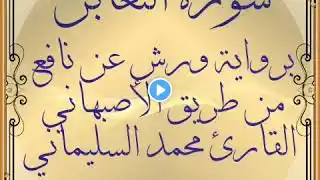 سورة التغابن
برواية ورش عن نافع
من طريق الأصبهاني
القارئ محمد السليماني